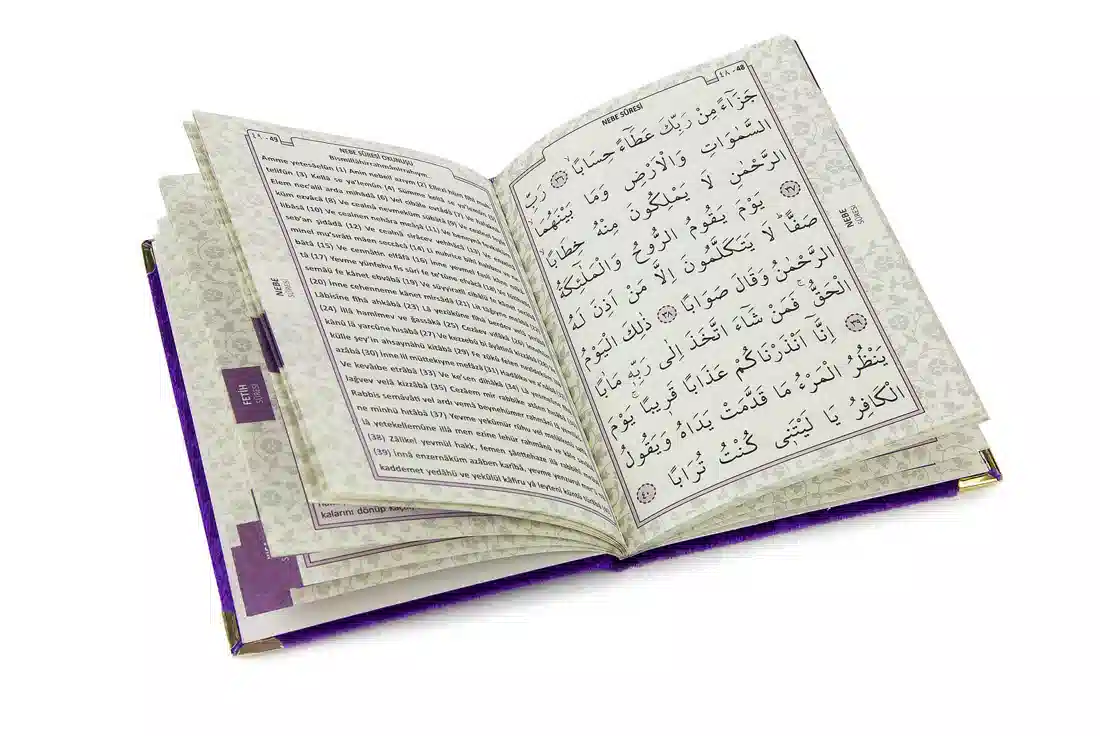 ٤٨ - 48
NEBE SÛRESİ
جَزَٓاءً مِنْ رَبِّكَ عَطَٓاءً حِسَابًاۙ ﴿٣٦﴾ رَبِّ
السَّمٰوَاتِ وَالْاَرْضِ وَمَا بَيْنَهُمَا
الرَّحْمٰنِ لَا يَمْلِكُونَ مِنْهُ خِطَابًاۚ
﴿٣٧﴾ يَوْمَ يَقُومُ الرُّوحُ وَالْمَلٰٓئِكَةُ
صَفًّاۜ لَا يَتَكَلَّمُونَ اِلَّا مَنْ اَذِنَ لَهُ
الرَّحْمٰنُ وَقَالَ صَوَابًا ﴿٣٨﴾ ذٰلِكَ الْيَوْمُ
الْحَقُّۚ فَمَنْ شَٓاءَ اتَّخَذَ اِلٰى رَبِّه۪ مَاٰبًا
﴿٣٩﴾ اِنَّٓا اَنْذَرْنَاكُمْ عَذَابًا قَر۪يبًاۚ يَوْمَ
يَنْظُرُ الْمَرْءُ مَا قَدَّمَتْ يَدَاهُ وَيَقُولُ
الْكَافِرُ يَا لَيْتَن۪ى كُنْتُ تُرَابًا
﴿٤٠﴾
NEBE
SÛRESİ
٤٩ - 49
NEBE SÛRESİ OKUNUŞU
Bismillâhirrahmânirrahîym.
Amme yetesâelûn (1) Anin nebeil azıym (2) Ellezî hüm fîhi
telifûn (3) Kellâ se ya'lemûn (4) Sümme kellâ se ya'lemûn (5)
Elem nec'alil arda mihâdâ (6) Vel cibâle evtâdâ (7) Ve
küm ezvâcâ (8) Ve cealnâ nevmeküm sübâtâ (9) Ve cealnel leyle
libâsâ (10) Ve cealnen nehâra meâşâ (11) Ve beneynâ
seb'an şidâdâ (12) Ve cealnâ sirâcev vehhâcâ (13) Ve
minel mu'sırâti mâen seccâcâ (14) Li nuhrice bihî habbev ve
bâtâ (15) Ve cennâtin elfâfâ (16) İnne yevmel fasli kâne
tâ (17) Yevme yünfehu fîs sûri fe te'tûne efvâcâ (18) Ve
semâü fe kânet ebvâbâ (19) Ve süyyiratil cibâlü fe kânet
(20) İnne cehenneme kânet mirsâdâ (21) Lit tâğıyne meâbâ (22)
Lâbisîne fîhâ ahkâbâ (23) Lâ yezûkûne fîhâ berdev velâ
(24) İllâ hamîmev ve ğassâkâ (25) Cezâev vifâkâ (26)
kânû lâ yarcûne hısâbâ (27) Ve kezzebû bi âyâtinâ kizzâbâ (28)
külle şey'in ahsaynâhü kitâbâ (29) Fe zûkû felen
azâbâ (30) İnne lil müttekıyne mefâzâ (31) Hadâika ve
Ve kevâibe etrâbâ (33) Ve ke'sen dihâkâ (34) Lâ
lağvev velâ kizzâbâ (35) Cezâem mir rabbike atâen
Rabbis semâvâti vel ardı vemâ beynehümer rahmâni
ne minhü hıtâbâ (37) Yevme yekûmür rûhu vel
lâ yetekellemûne illâ men ezine lehür rahmânü ve kâle
(38) Zâlikel yevmül hakk, femen şâettehaze ilâ rabbihî
(39) İnnâ enzernâküm azâben karîbâ, yevme yenzurul
kaddemet yedâhü ve yekûlül kâfiru yâ leytenî küntü türâbâ
NEBE
SÛRESİ
FETİH
SÛRESİ
kalarını dönüp